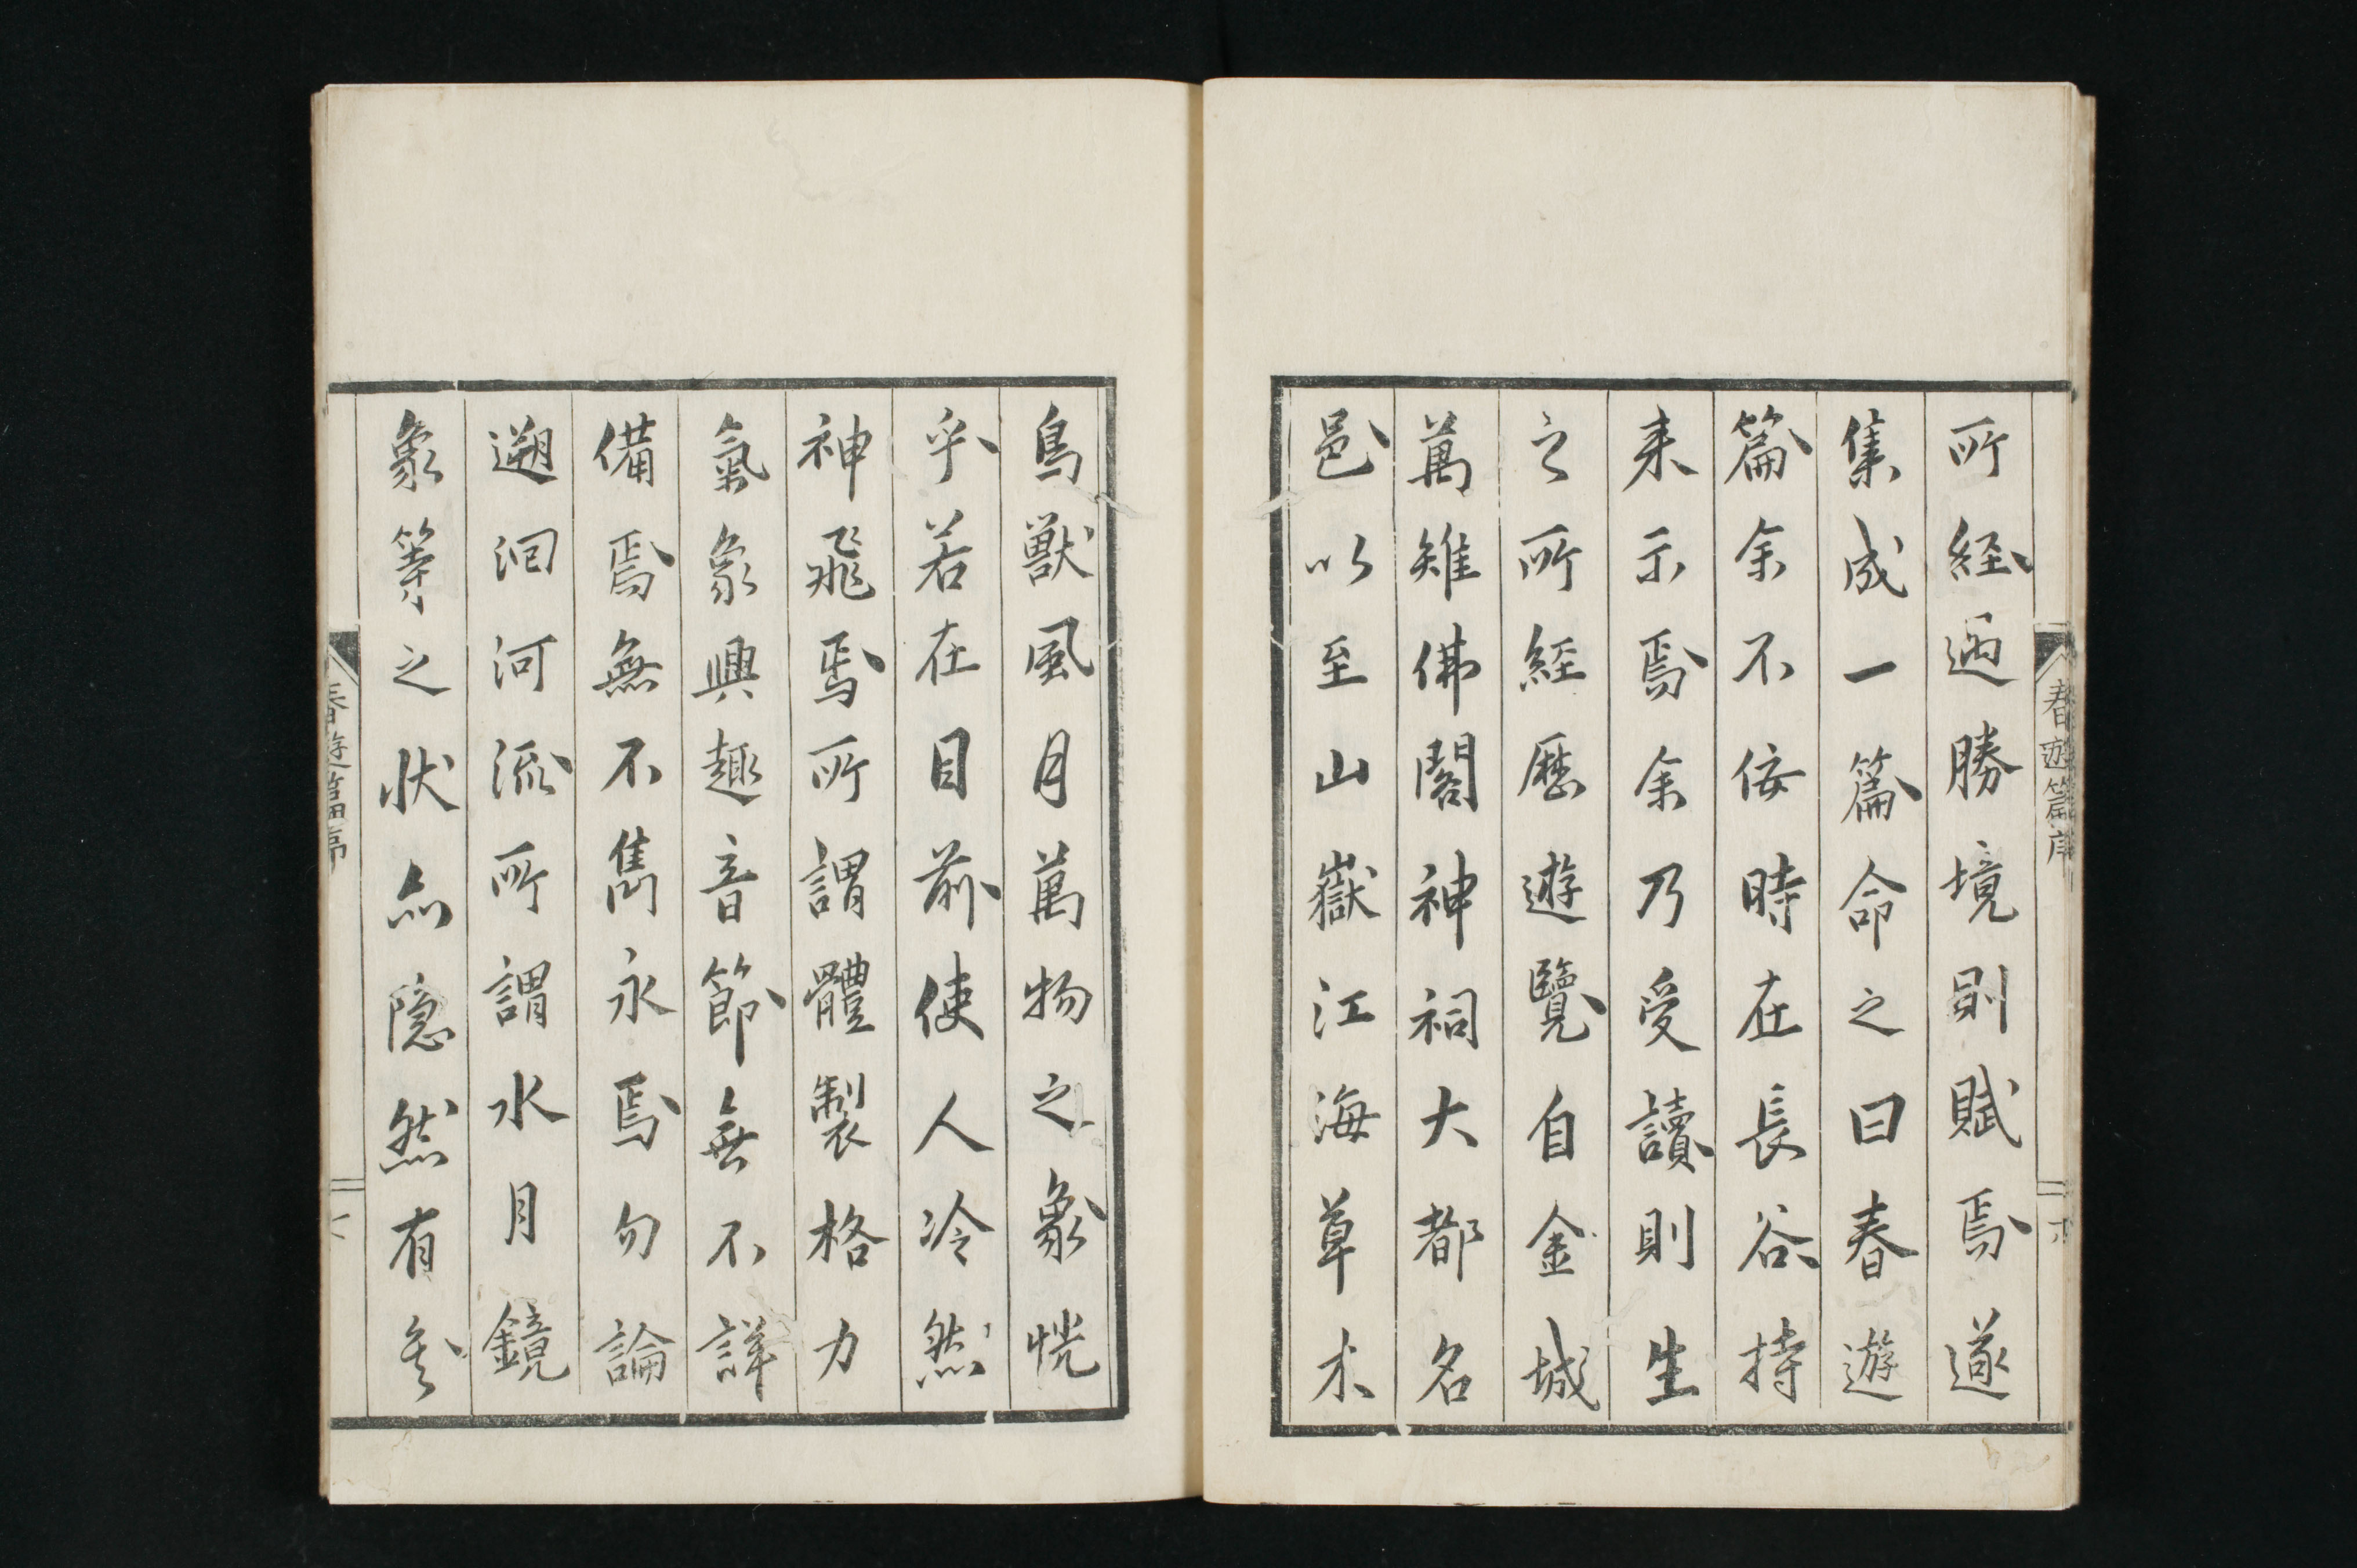 春遊篇序
所經過勝境則賦焉遂
集成一篇命之曰春遊
篇余不佞時在長谷持
来示焉余乃受讀則生
之所經歷遊覽自金城
萬雉佛閣神祠大都名
邑以至山嶽江海草木
鳥獸風月萬物之象恍
乎若在目前使人冷然
神飛焉所謂體製格力
氣象興趣音節無不詳
備焉無不雋永焉勿論
遡洄河流所謂水月鏡
象等之状亦隠然有矣
春遊篇序